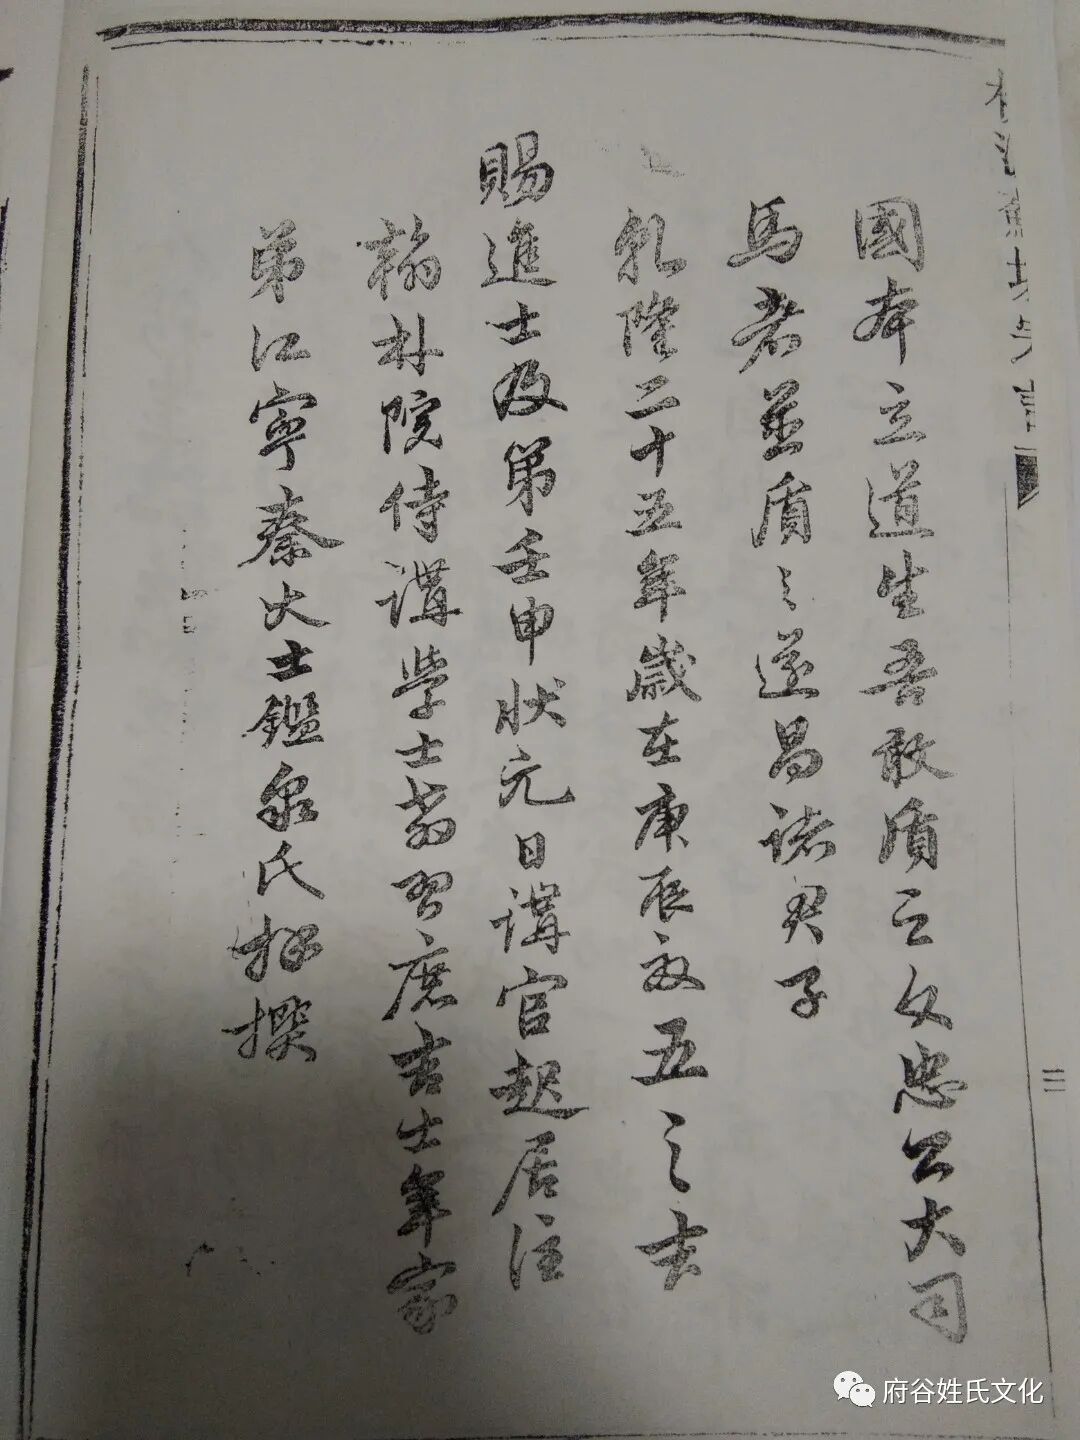 國本立道生吾敢質之文忠公大司
馬者並質之遂昌諸君子
乾隆二十五年歲在庚辰放五之吉
賜進士及第壬申狀元日講官起居注
翰林院侍講學士教習庶吉士年家
弟江寧秦大士鑑泉氏拜撰
三
府谷姓氏文化